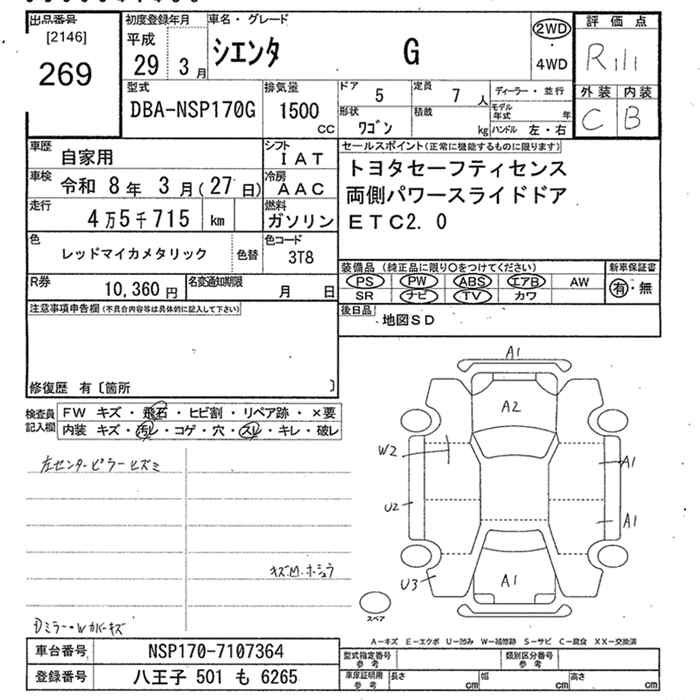 出品番号
[2146]
269
初度登録年月
平成
29 3月
車名・グレード
シエンタ G
2WD
・
4WD
評価点
R111
外装 内装
C B
型式
DBA-NSP170G
排気量
1500
cc
ドア 5
定員 7 人
形状 ワゴン
積載 kg
ディーラー・並行
モデル年式 年
ハンドル 左・右
車歴
自家用
シフト
IAT
車検
令和 8年 3月(27日)
冷房
AAC
走行
4万5千715 km
燃料
ガソリン
色
レッドマイカメタリック
色替
色コード
3T8
セールスポイント(正常に機能するものに限ります)
トヨタセーフティセンス
両側パワースライドドア
ETC2.0
R券
10,360 円
名変通知期限
月 日
装備品 (純正品に限り〇をつけてください)
PS PW ABS エアB AW
SR ナビ TV カワ
新車保証書
有・無
後日品
地図SD
注意事項申告欄(不具合内容等は具体的に記入して下さい)
修復歴 有〔箇所 〕
検査員記入欄
FW キズ・飛石・ヒビ割・リペア跡・×要
内装 キズ・汚レ・コゲ・穴・スレ・キレ・破レ
左センターピラーヒズミ
Dミラー・Wカバーキズ
A1
A2
W2
A1
U2
A1
U3
A1
スペア
A−キズ E−エクボ U−凹み W−補修跡 S−サビ C−腐食 XX−交換済
車台番号
NSP170-7107364
登録番号
八王子 501 も 6265
型式指定番号
参考
類別区分番号
参考
車庫証明用
参考
長さ cm
幅 cm
高さ cm